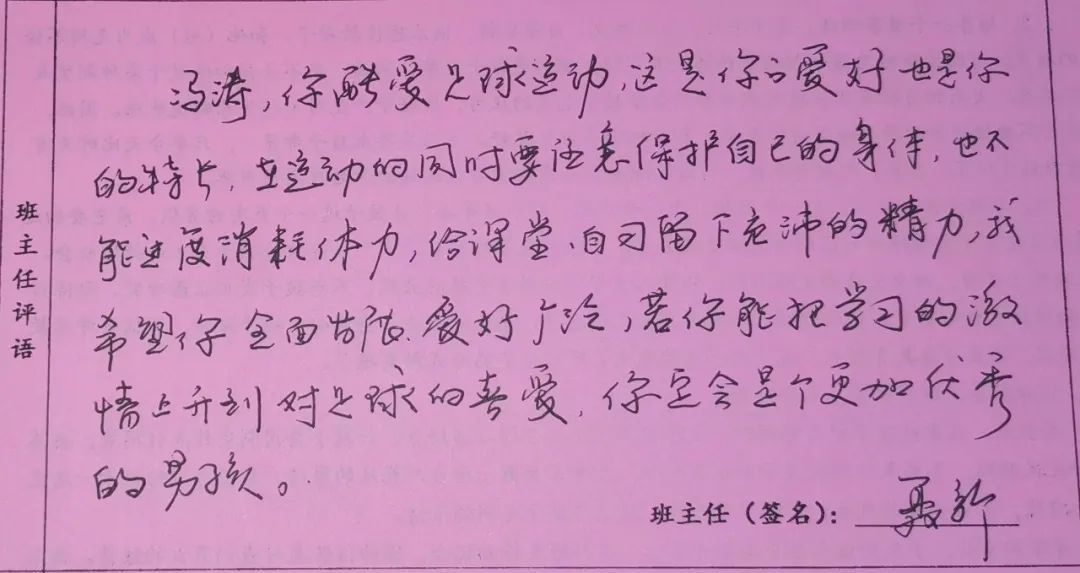 冯涛,你酷爱足球运动,这是你的爱好也是你
的特长,在运动的同时要注意保护自己的身体,也不
能过度消耗体力,给课堂、自习留下充沛的精力,我
希望你全面发展、爱好广泛,若你能把学习的激
情上升到对足球的喜爱,你定会是个更加优秀
的男孩。
班主任评语
班主任(签名):